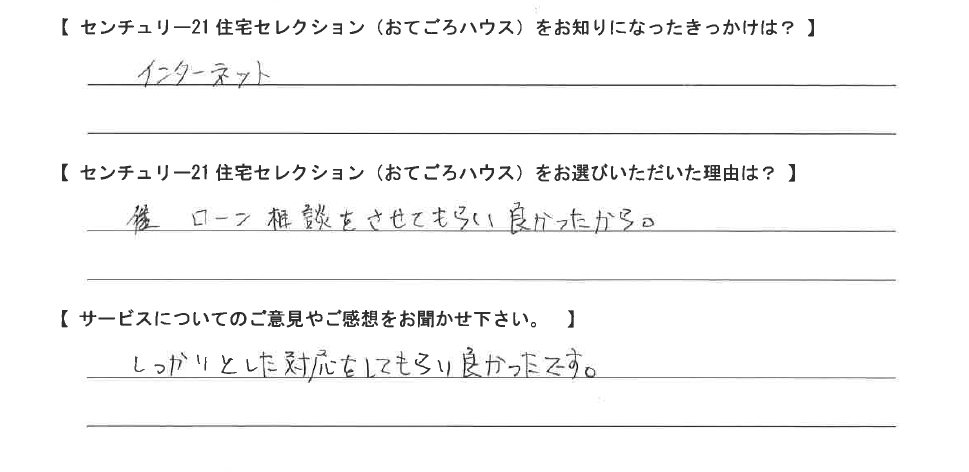 【 センチュリー21 住宅セレクション（おてごろハウス）をお知りになったきっかけは？ 】
インターネット
【 センチュリー21 住宅セレクション（おてごろハウス）をお選びいただいた理由は？ 】
ローン相談をさせてもらい良かったから。
【 サービスについてのご意見やご感想をお聞かせ下さい。 】
しっかりとした対応をしてもらい良かったです。